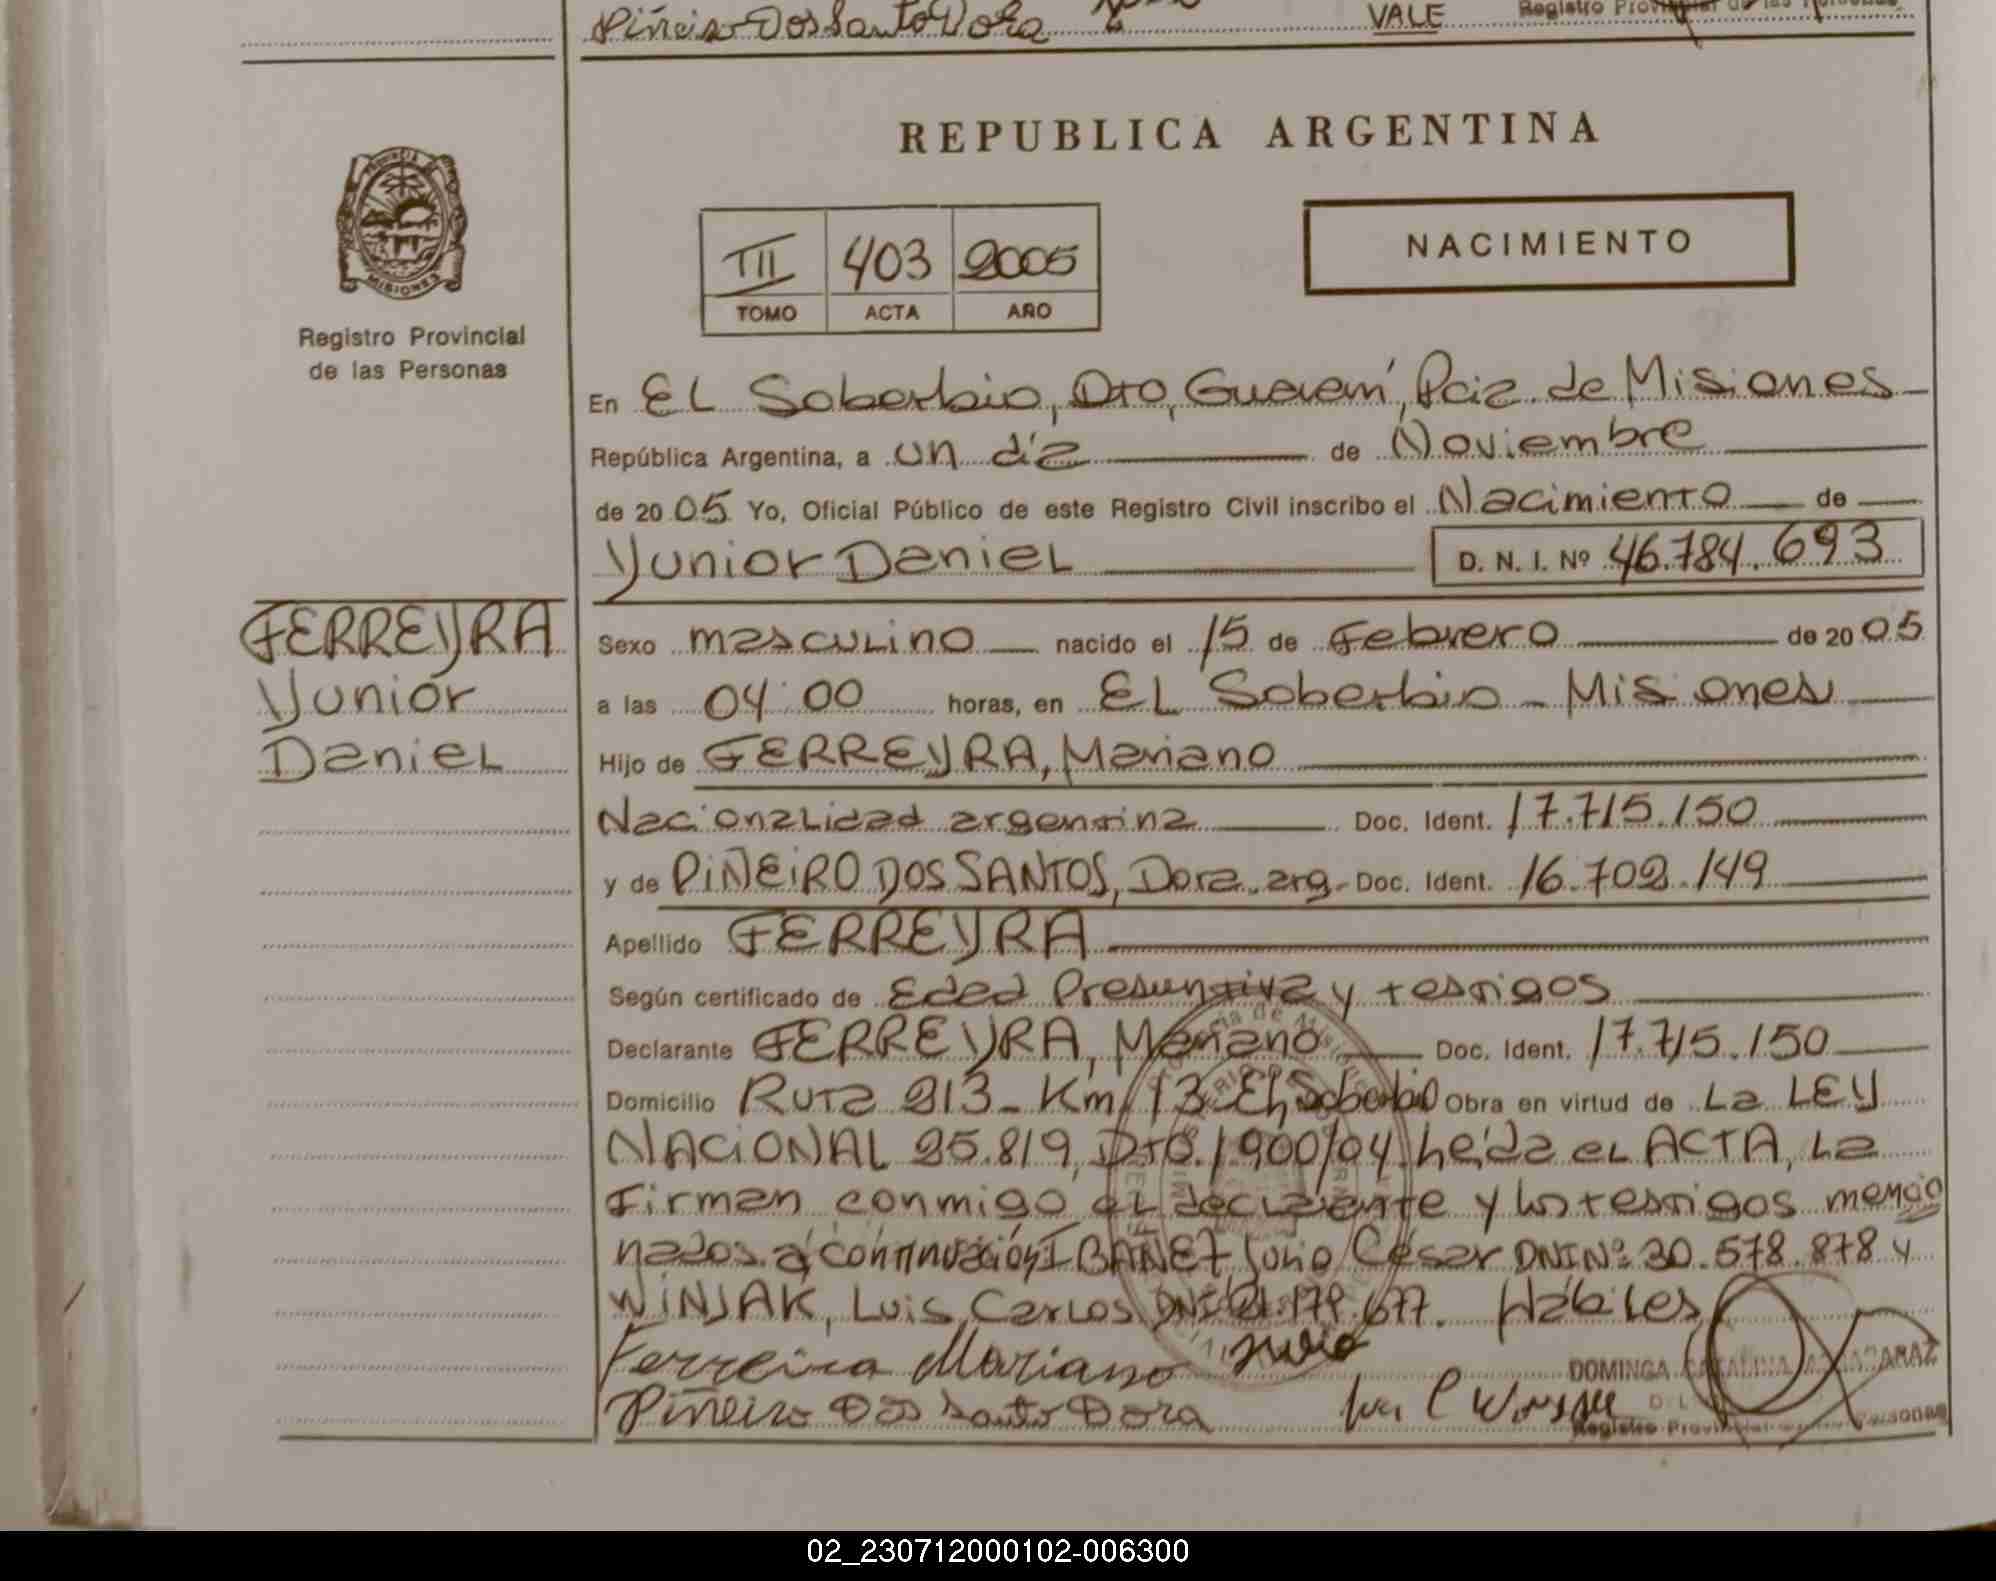 Piñeiro Dos Santo Dora
VALE
Registro Provincial de las Personas
REPUBLICA ARGENTINA
PROVINCIA
MISIONES
Registro Provincial
de las Personas
III 403 2005
TOMO ACTA AÑO
NACIMIENTO
En EL Soberbio, Dto, Guarani, Pcia. de Misiones
República Argentina, a un día de Noviembre
de 20 05 Yo, Oficial Público de este Registro Civil inscribo el Nacimiento de
Yunior Daniel D. N. I. Nº 46.784.693
FERREYRA
Yunior
Daniel
Sexo masculino nacido el 15 de Febrero de 20 05
a las 04:00 horas, en EL Soberbio - Misiones
Hijo de FERREYRA, Mariano
Nacionalidad argentina Doc. Ident. 17.715.150
y de PIÑEIRO DOS SANTOS, Dora. arg- Doc. Ident. 16.702.149
Apellido FERREYRA
Según certificado de Edad Presuntiva y testigos
Declarante FERREYRA, Mariano Doc. Ident. 17.715.150
Domicilio Ruta 213 - Km. 13 - El Soberbio Obra en virtud de La LEY
NACIONAL 25.819, Dto. 1.900/04. Leída el ACTA, La
Firman conmigo el declarante y los testigos mencio
nados a continuación IBAÑEZ Julio César DNI Nº 30.578.878 y
WINJAK, Luis Carlos DNI 21.179.677. Hábiles
Ferreira Mariano
DOMINGA CATALINA
Piñeiro Dos Santo Dora
Registro Provincial Personas
02_230712000102-006300